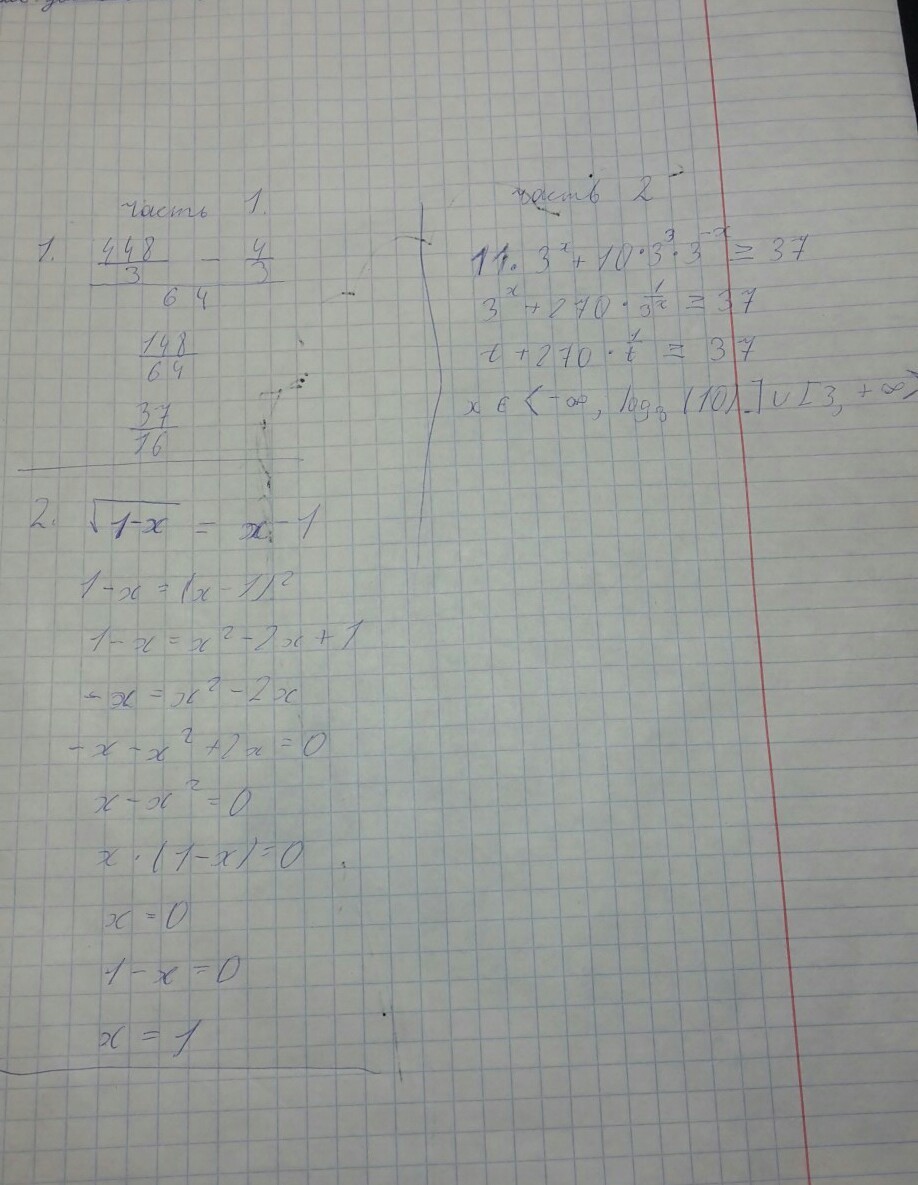 часть 1.
1. 448/3 - 4/3
64
148/64
37/16
2. √1-x = x-1
1-x = (x-1)²
1-x = x²-2x+1
-x = x²-2x
-x-x²+2x=0
x-x²=0
x·(1-x)=0
x=0
1-x=0
x=1
часть 2
11. 3ˣ+10·3³·3⁻ˣ ≥ 37
3ˣ+270·1/3ˣ ≥ 37
t+270·1/t ≥ 37
x ∈ <-∞, log₃(10)] ∪ [3, +∞>